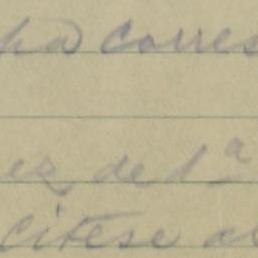 corres
ez de 1ª
citese al